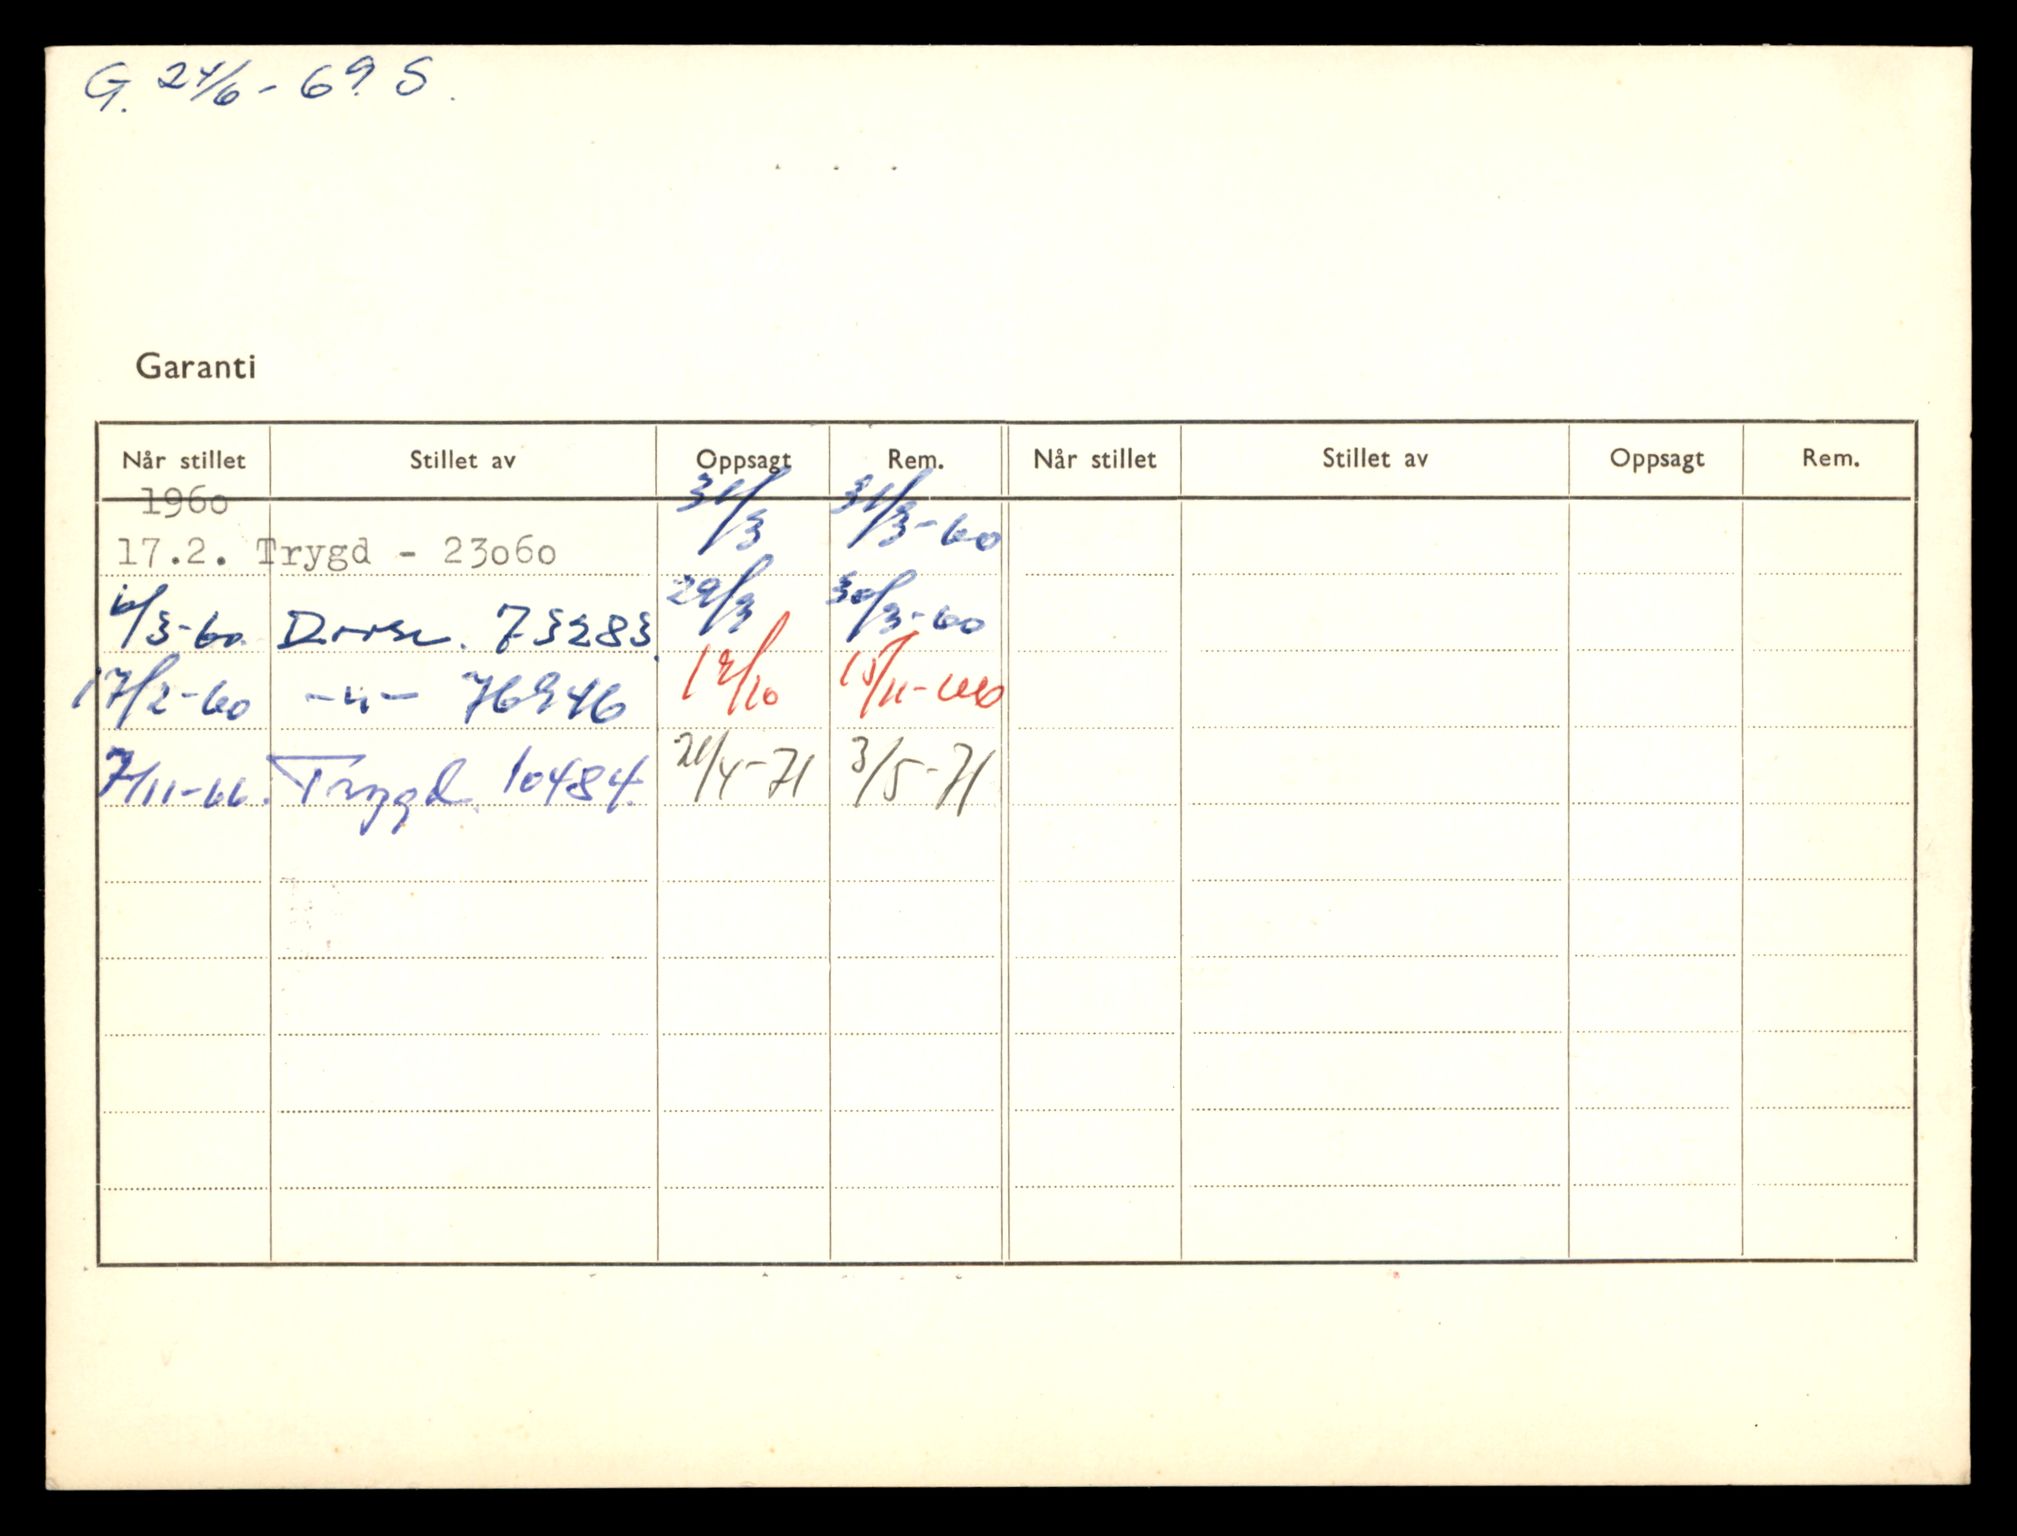 G. 24/6 - 69. S.
Garanti
Når stillet Stillet av Oppsagt Rem. Når stillet Stillet av Oppsagt Rem.
1960
17.2. Trygd - 23060 31/3 31/3-60
/3-60 73283. 29/3 30/3-60
17/2-60 -"- 76946 /10 15/11-
7/11-66. Trygd. 10484. /4-71 3/5-71